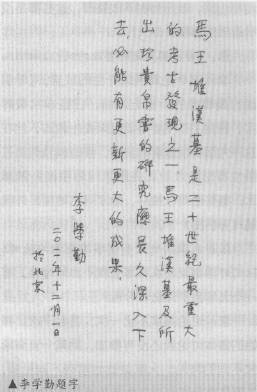 馬王堆漢墓是二十世紀最重大
的考古發現之一，馬王堆漢墓及所
出珍貴帛書的研究應長久深入下
去，必能有更新更大的成果。
李學勤
二〇一一年十二月一日
於北京
▲李学勤题字